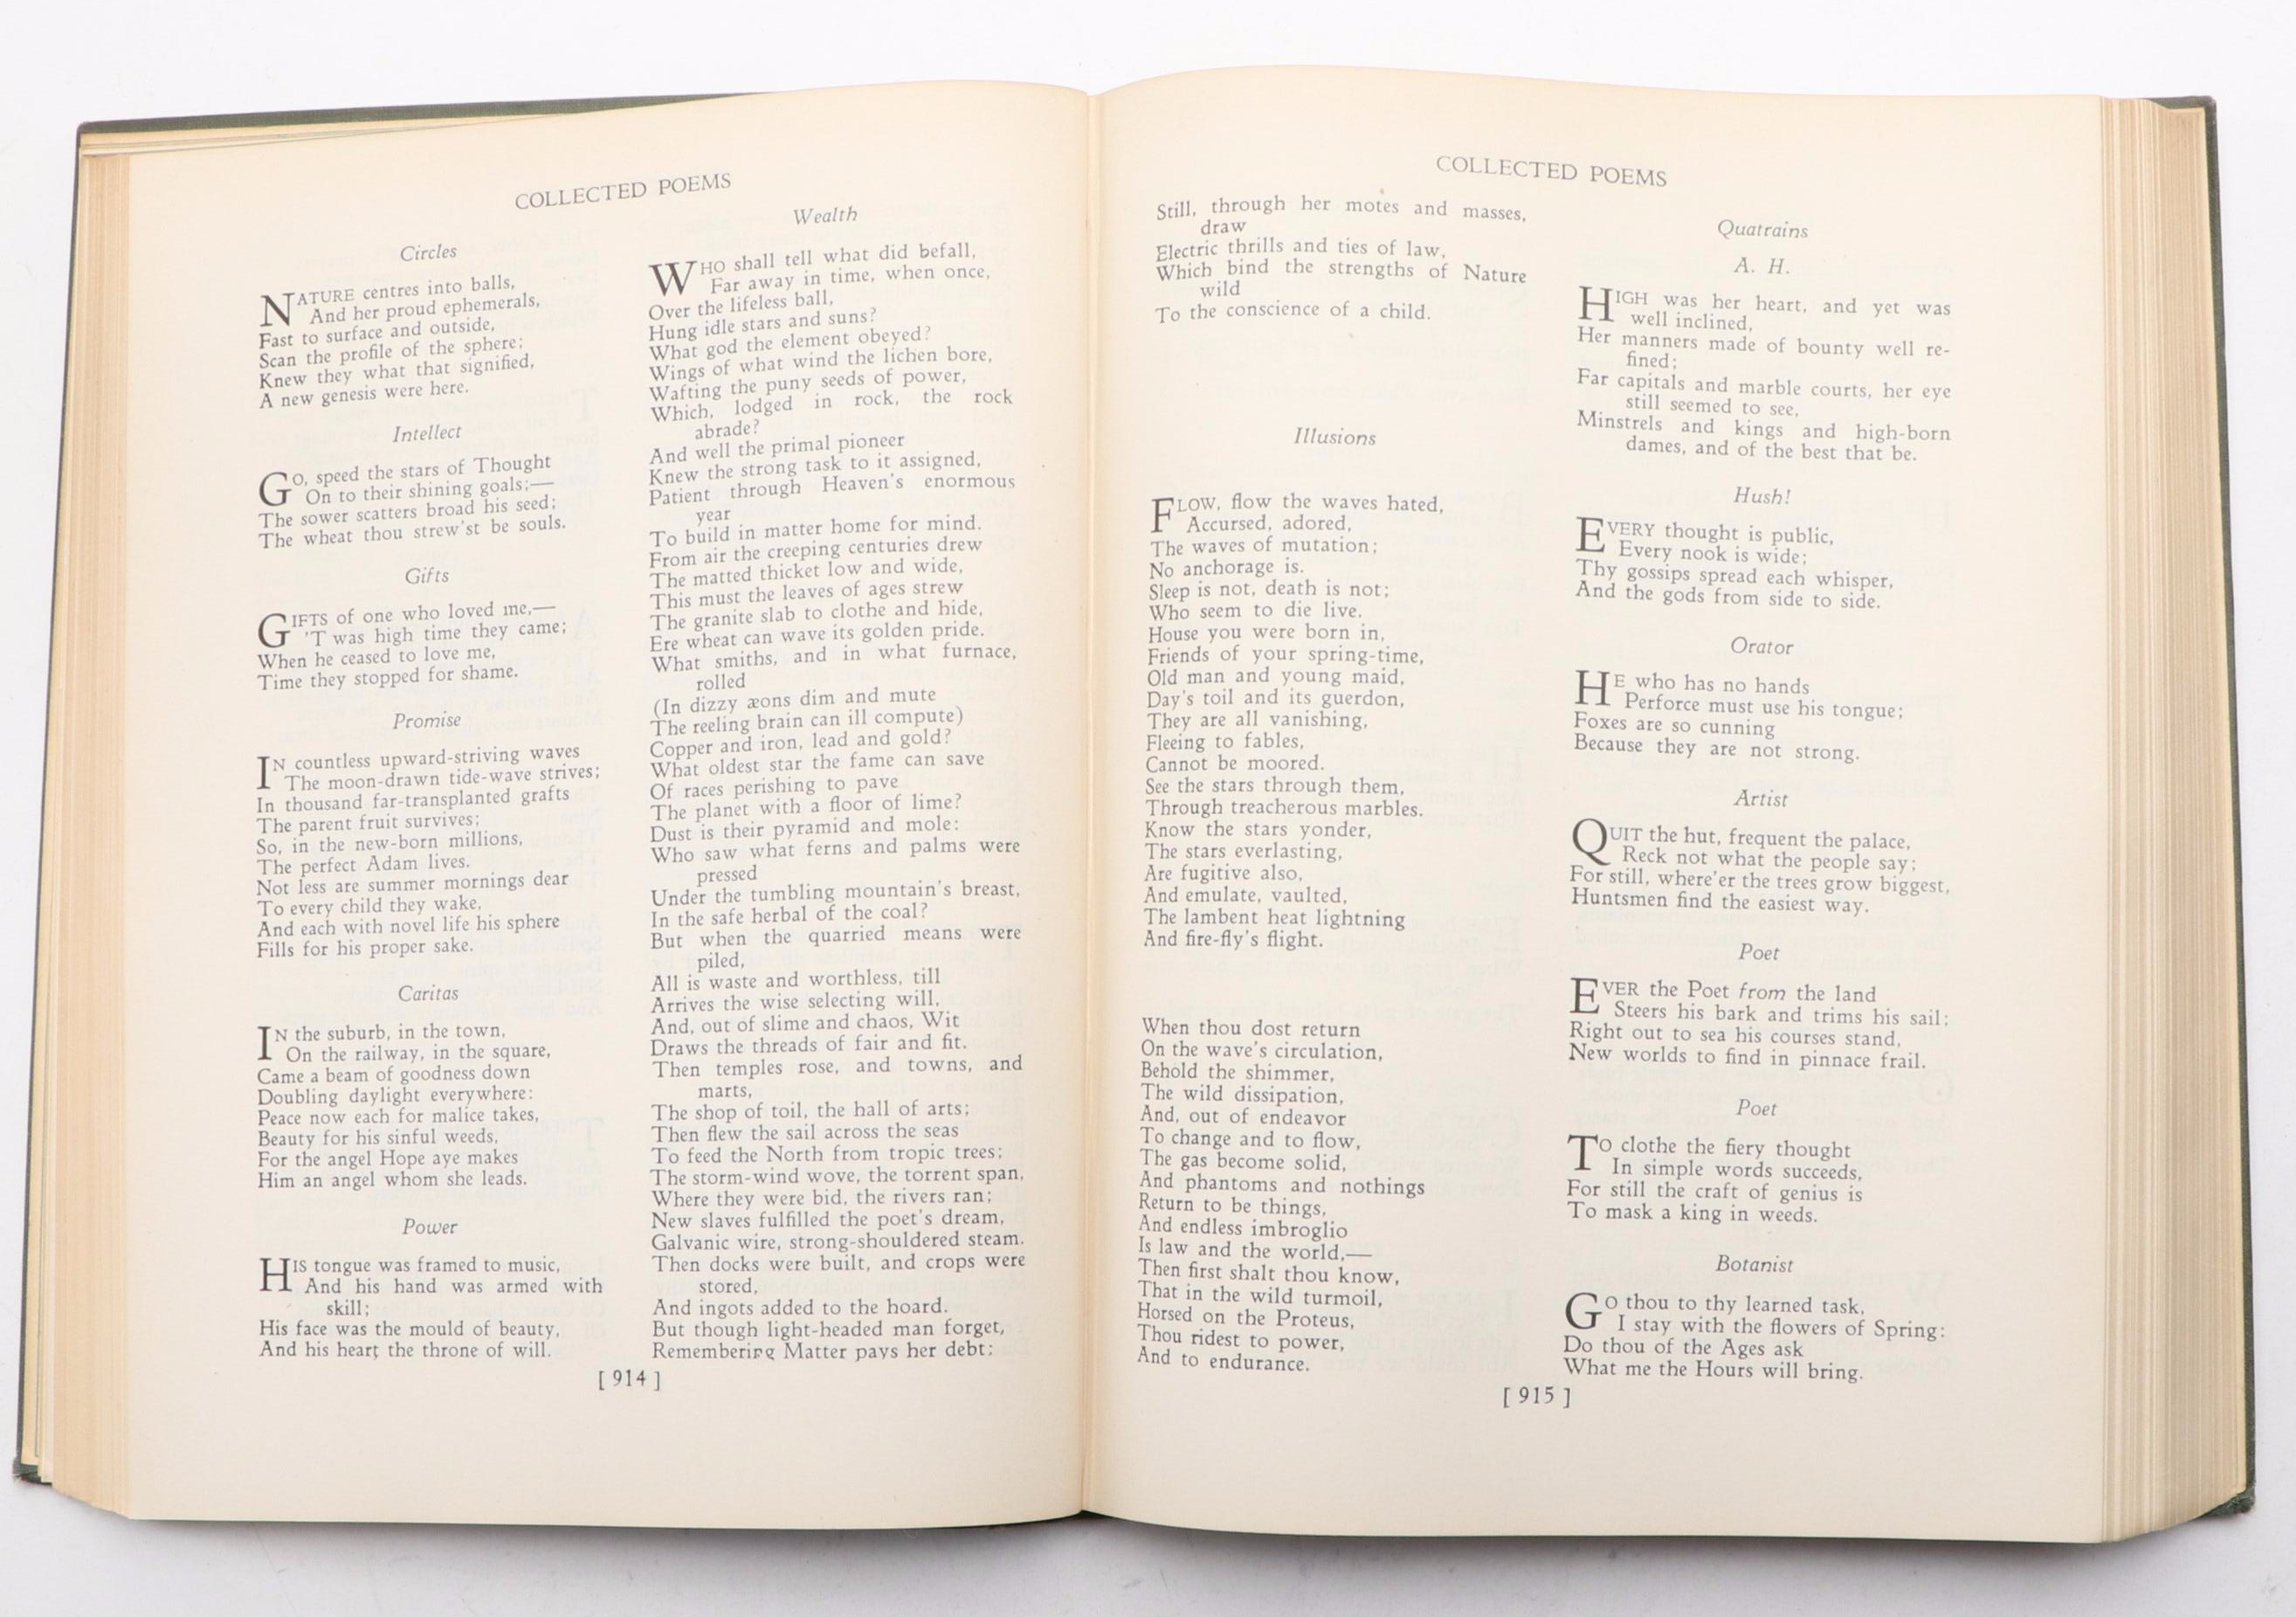 COLLECTED POEMS
Circles
NATURE centres into balls,
And her proud ephemerals,
Fast to surface and outside,
Scan the profile of the sphere;
Knew they what that signified,
A new genesis were here.
Intellect
GO, speed the stars of Thought
On to their shining goals;—
The sower scatters broad his seed;
The wheat thou strew'st be souls.
Gifts
GIFTS of one who loved me,—
'T was high time they came;
When he ceased to love me,
Time they stopped for shame.
Promise
IN countless upward-striving waves
The moon-drawn tide-wave strives;
In thousand far-transplanted grafts
The parent fruit survives;
So, in the new-born millions,
The perfect Adam lives.
Not less are summer mornings dear
To every child they wake,
And each with novel life his sphere
Fills for his proper sake.
Caritas
IN the suburb, in the town,
On the railway, in the square,
Came a beam of goodness down
Doubling daylight everywhere:
Peace now each for malice takes,
Beauty for his sinful weeds,
For the angel Hope aye makes
Him an angel whom she leads.
Power
HIS tongue was framed to music,
And his hand was armed with
skill;
His face was the mould of beauty,
And his heart the throne of will.
Wealth
WHO shall tell what did befall,
Far away in time, when once,
Over the lifeless ball,
Hung idle stars and suns?
What god the element obeyed?
Wings of what wind the lichen bore,
Wafting the puny seeds of power,
Which, lodged in rock, the rock
abrade?
And well the primal pioneer
Knew the strong task to it assigned,
Patient through Heaven's enormous
year
To build in matter home for mind.
From air the creeping centuries drew
The matted thicket low and wide,
This must the leaves of ages strew
The granite slab to clothe and hide,
Ere wheat can wave its golden pride.
What smiths, and in what furnace,
rolled
(In dizzy æons dim and mute
The reeling brain can ill compute)
Copper and iron, lead and gold?
What oldest star the fame can save
Of races perishing to pave
The planet with a floor of lime?
Dust is their pyramid and mole:
Who saw what ferns and palms were
pressed
Under the tumbling mountain's breast,
In the safe herbal of the coal?
But when the quarried means were
piled,
All is waste and worthless, till
Arrives the wise selecting will,
And, out of slime and chaos, Wit
Draws the threads of fair and fit.
Then temples rose, and towns, and
marts,
The shop of toil, the hall of arts;
Then flew the sail across the seas
To feed the North from tropic trees;
The storm-wind wove, the torrent span,
Where they were bid, the rivers ran;
New slaves fulfilled the poet's dream,
Galvanic wire, strong-shouldered steam.
Then docks were built, and crops were
stored,
And ingots added to the hoard.
But though light-headed man forget,
Remembering Matter pays her debt;
[ 914 ]
COLLECTED POEMS
Still, through her motes and masses,
draw
Electric thrills and ties of law,
Which bind the strengths of Nature
wild
To the conscience of a child.
Illusions
FLOW, flow the waves hated,
Accursed, adored,
The waves of mutation;
No anchorage is.
Sleep is not, death is not;
Who seem to die live.
House you were born in,
Friends of your spring-time,
Old man and young maid,
Day's toil and its guerdon,
They are all vanishing,
Fleeing to fables,
Cannot be moored.
See the stars through them,
Through treacherous marbles.
Know the stars yonder,
The stars everlasting,
Are fugitive also,
And emulate, vaulted,
The lambent heat lightning
And fire-fly's flight.
When thou dost return
On the wave's circulation,
Behold the shimmer,
The wild dissipation,
And, out of endeavor
To change and to flow,
The gas become solid,
And phantoms and nothings
Return to be things,
And endless imbroglio
Is law and the world,—
Then first shalt thou know,
That in the wild turmoil,
Horsed on the Proteus,
Thou ridest to power,
And to endurance.
Quatrains
A. H.
HIGH was her heart, and yet was
well inclined,
Her manners made of bounty well re-
fined;
Far capitals and marble courts, her eye
still seemed to see,
Minstrels and kings and high-born
dames, and of the best that be.
Hush!
EVERY thought is public,
Every nook is wide;
Thy gossips spread each whisper,
And the gods from side to side.
Orator
HE who has no hands
Perforce must use his tongue;
Foxes are so cunning
Because they are not strong.
Artist
QUIT the hut, frequent the palace,
Reck not what the people say;
For still, where'er the trees grow biggest,
Huntsmen find the easiest way.
Poet
EVER the Poet from the land
Steers his bark and trims his sail;
Right out to sea his courses stand,
New worlds to find in pinnace frail.
Poet
TO clothe the fiery thought
In simple words succeeds,
For still the craft of genius is
To mask a king in weeds.
Botanist
GO thou to thy learned task,
I stay with the flowers of Spring:
Do thou of the Ages ask
What me the Hours will bring.
[ 915 ]